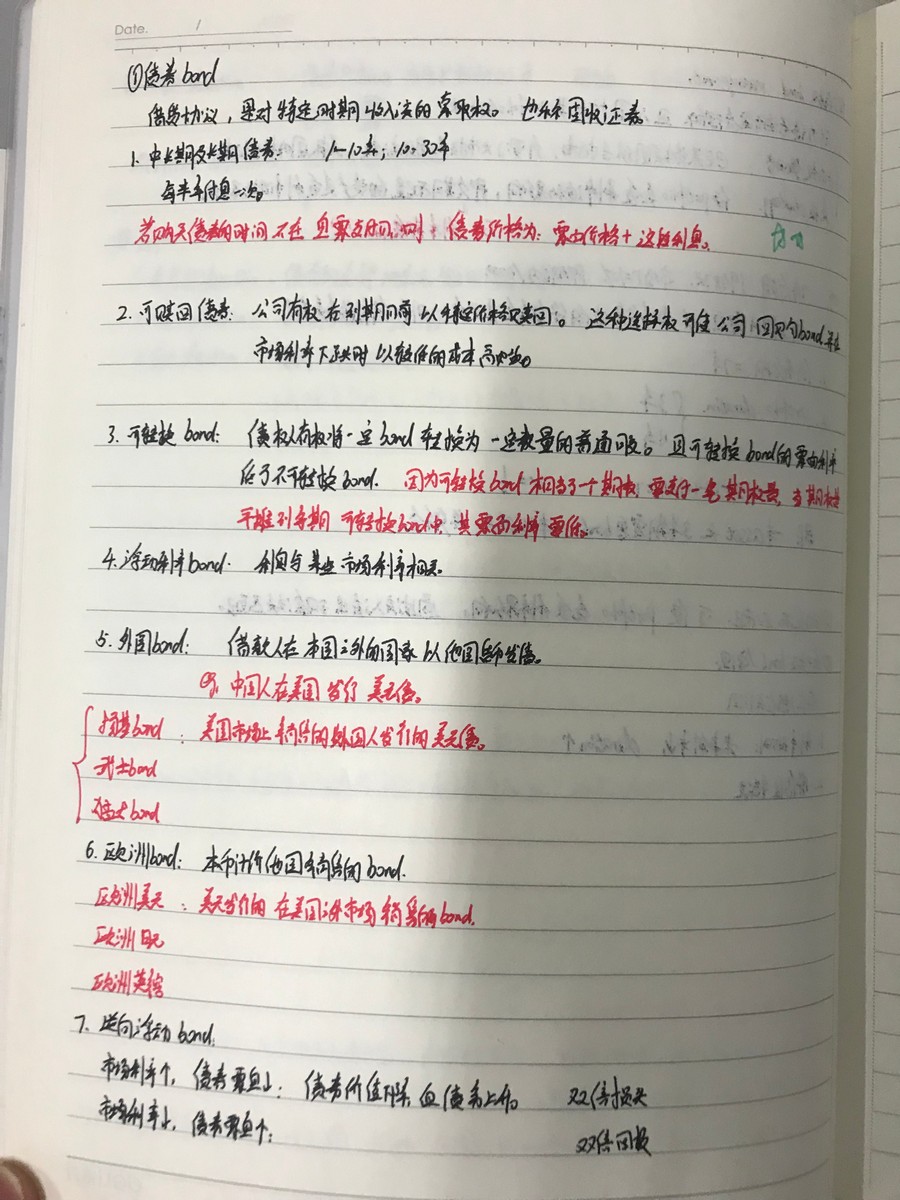 Date. /
①债券 bond
借贷协议，是对特定时期收入流的索取权。也称固收证券
1. 中长期及长期债券： 1~10年；10~30年
每半年付息一次。
若购买债券的时间不在息票支付间，则 债券价格为：票面价格+这段利息。
2. 可赎回债券： 公司有权在到期日前以特定价格赎回。 这种选择权可使公司回购bond，并在
市场利率下跌时以较低的成本
3. 可转换 bond： 债权人有权将一定bond转换为一定数量的普通股。且可转换bond的票面利率
低于不可转换bond. 因为可转换bond相当于一个期权，需支付一笔期权费，当期权费
平摊到每期可转换bond中，其票面利率更低。
4. 浮动利率bond. 利息与某些市场利率相关。
5. 外国bond： 借款人在本国之外的国家以他国货币发债。
eg. 中国人在美国发行美元债。
扬基bond ：美国市场上销售的外国人发行的美元债。
武士bond
猛犬bond
6. 欧洲bond： 本币计价他国销售的bond.
欧洲美元 ：美元发行的在美国之外市场销售的bond.
欧洲日元
欧洲英镑
7. 逆向浮动 bond.
市场利率↑，债券票息↓： 债券价值 双倍损失
市场利率↓，债券票息↑： 双倍回报